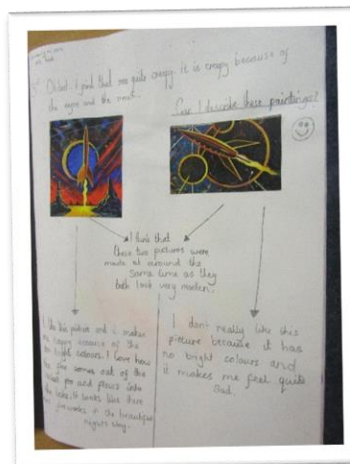 I find that one quite creepy. It is creepy because of
the eyes and the
Can I describe these paintings?
I think that
these two pictures were
made at around the
same time as they
both look very modern.
I like this picture and it makes
me happy because of the
bright colours. I love how
the fire comes out of the
rocket and flows into
the lake. It looks like there
fireworks in the beautiful
night sky.
I don't really like this
picture because it has
no bright colours and
it makes me feel quite
sad.